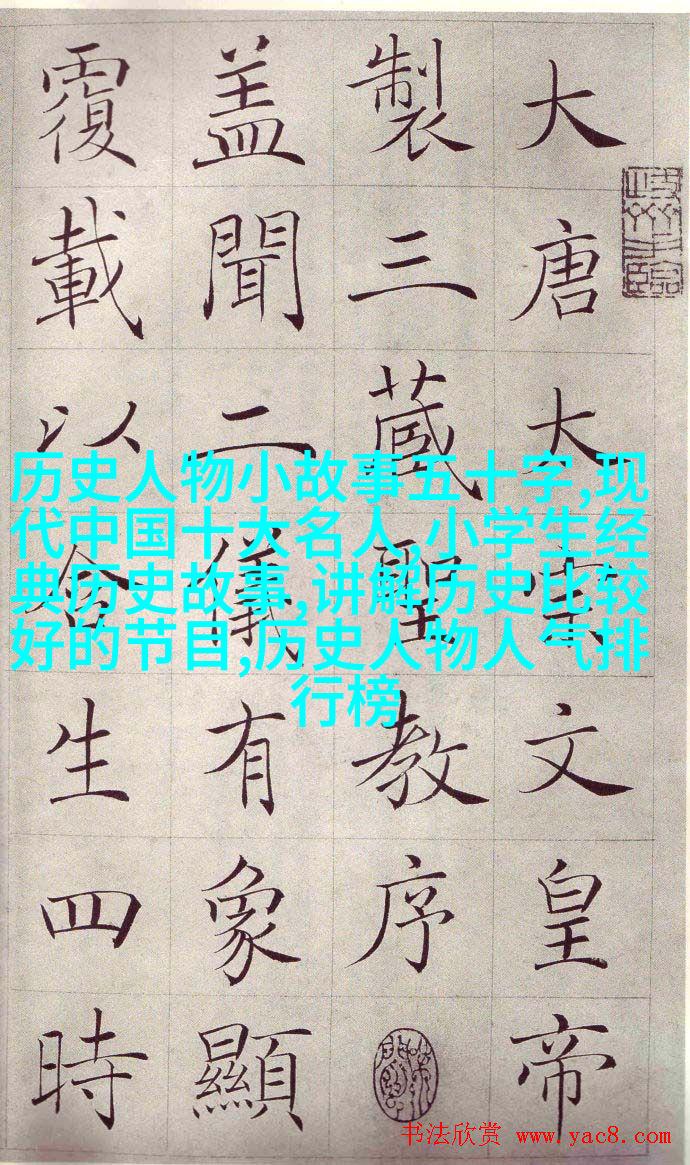 大唐大宗文皇帝
製三蔵聖教序
盖聞二儀有象顯
覆載以含生四時
历史人物小故事五十字,现
代中国十大名人,小学生经
典历史故事,讲解历史比较
好的节目,历史人物人气排
行榜
书法欣赏 www.yac8.com